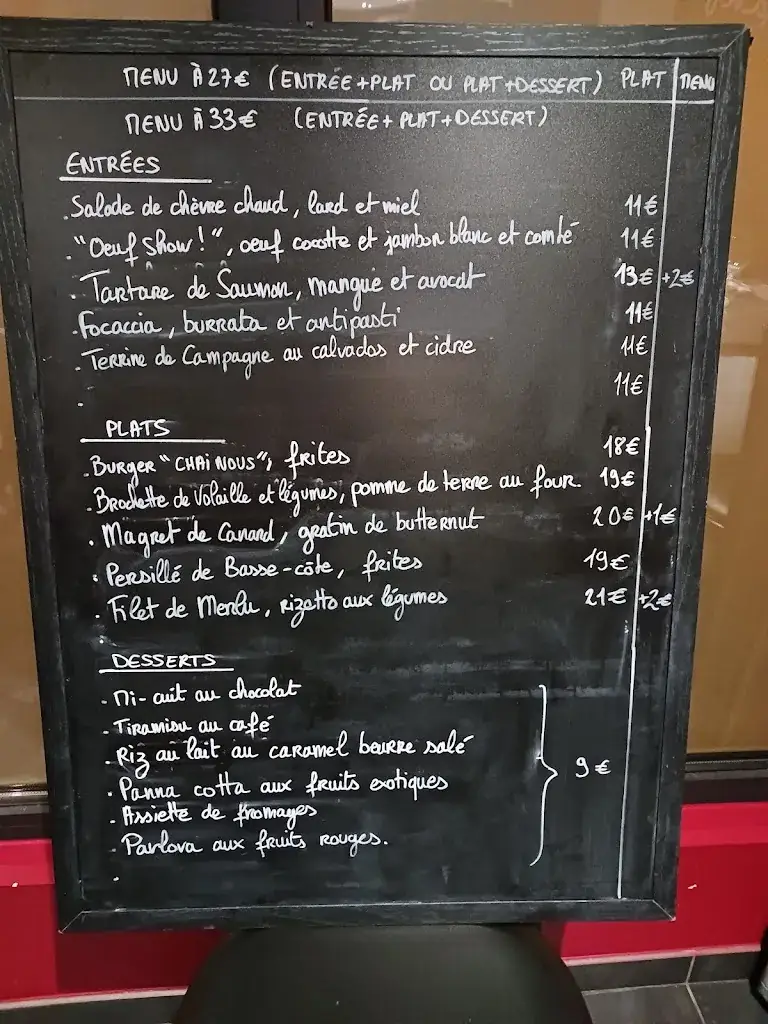 MENU À 27€ (ENTRÉE+PLAT OU PLAT+DESSERT) PLAT MENU
MENU À 33€ (ENTRÉE+PLAT+DESSERT)
ENTRÉES
.Salade de chèvre chaud, lard et miel 11€
."Oeuf show!", oeuf cocotte et jambon blanc et comté 11€
.Tartare de Saumon, mangue et avocat 13€ +2€
.Focaccia, burrata et antipasti 11€
.Terrine de Campagne au calvados et cidre 11€
. 11€
PLATS
.Burger "CHAI NOUS", frites 18€
.Brochette de Volaille et légumes, pomme de terre au four. 19€
.Magret de Canard, gratin de butternut 20€ +1€
.Persillé de Basse-côte, frites 19€
.Filet de Merlu, rizotto aux légumes 21€ +2€
.
DESSERTS
.Mi-cuit au chocolat
.Tiramisu au café
.Riz au lait au caramel beurre salé
.Panna cotta aux fruits exotiques 9€
.Assiette de fromages
.Pavlova aux fruits rouges.
.